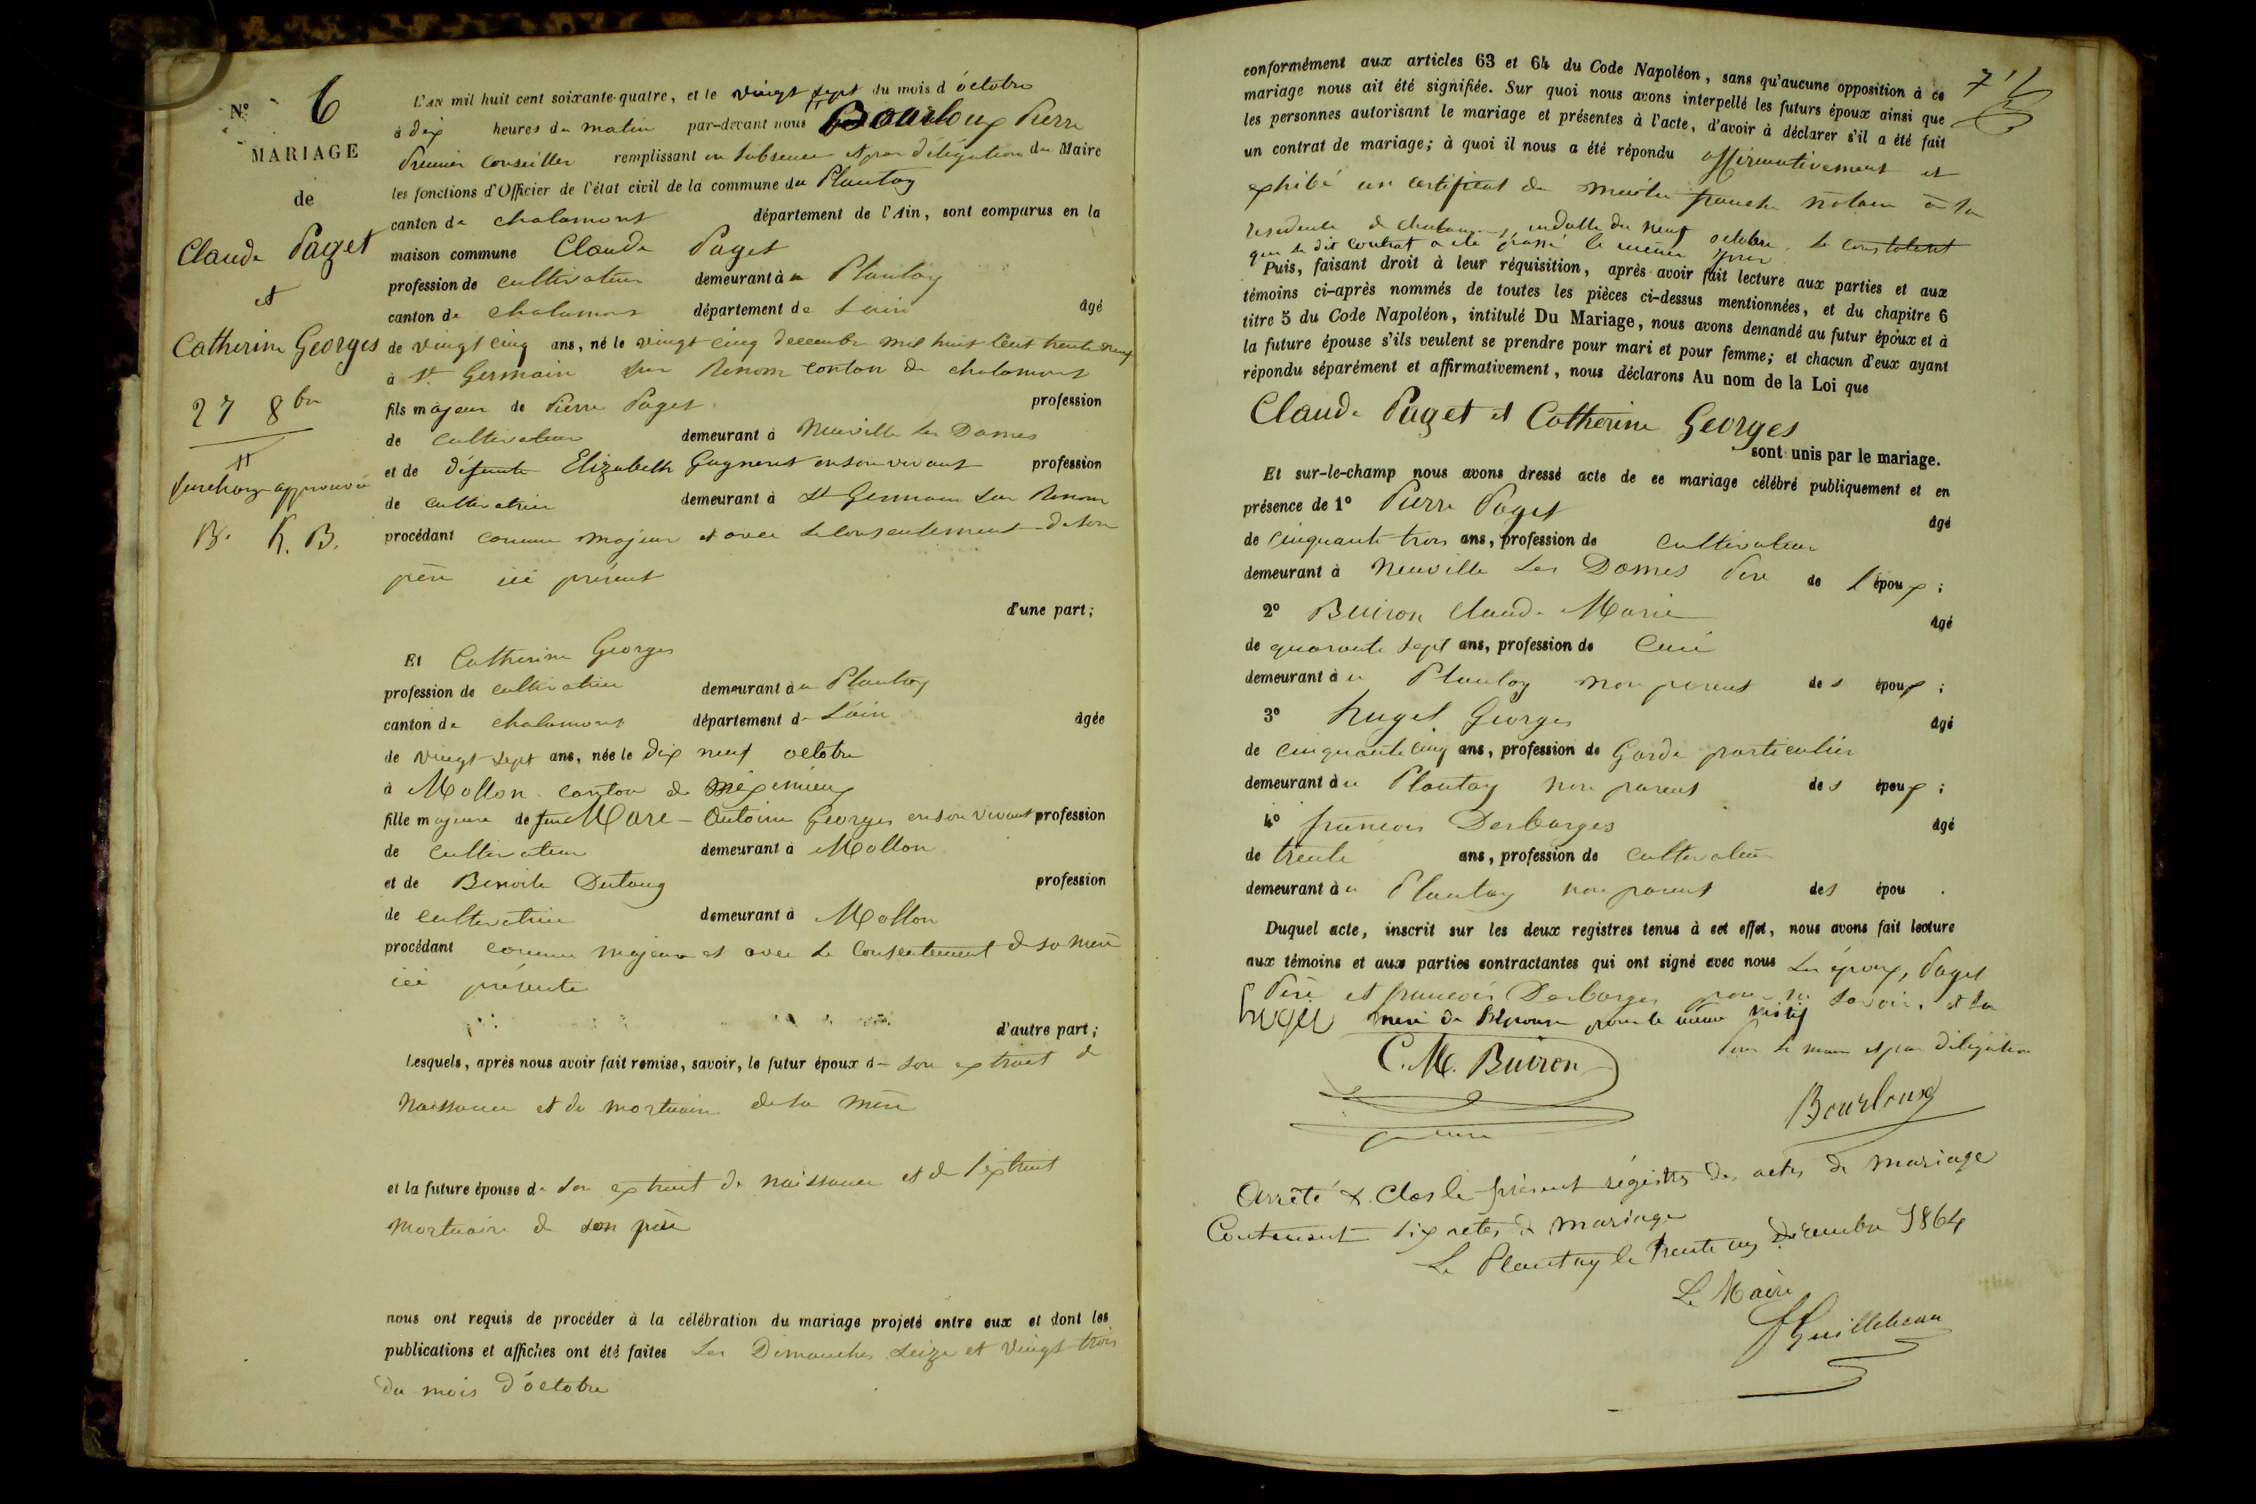 N° 6
MARIAGE
de
Claude Paget
et
Catherine Georges
27 8bre
surcharge approuvée
B. h. B.
L'AN mil huit cent soixante-quatre, et le vingt sept du mois d'octobre
à dix heures du matin par-devant nous Bourloux Pierre
Premier conseiller remplissant en l'absence et par délégation du Maire
les fonctions d'Officier de l'état civil de la commune du Plantay
canton de chalamont département de l'Ain, sont comparus en la
maison commune Claude Paget
profession de cultivateur demeurant à u Plantay
canton de chalamont département de L'ain âgé
de vingt cinq ans, né le vingt cinq decembre mil huit cent trente neuf
à St Germain sur Renom canton de chalamont
fils majeur de Pierre Paget profession
de cultivateur demeurant à Neuville Les Dames
et de défunte Elizabeth Gagneret en son vivant profession
de cultivatrice demeurant à St Germain sur Renom
procédant comme majeur et avec le consentement de son
père ici présent
d'une part;
Et Catherine Georges
profession de cultivatrice demeurant à u Plantay
canton de chalamont département de L'ain âgée
de vingt sept ans, née le dix neuf octobre
à Mollon canton de meximieux
fille majeure de feu Marc-Antoine Georges en son vivant profession
de cultivateur demeurant à Mollon
et de Benoite Dutang profession
de cultivatrice demeurant à Mollon
procédant comme majeure et avec le consentement de sa mère
ici présente
d'autre part;
Lesquels, après nous avoir fait remise, savoir, le futur époux de son extrait de
naissance et du mortuaire de sa mère
et la future épouse de son extrait de naissance et de l'extrait
mortuaire de son père
nous ont requis de procéder à la célébration du mariage projeté entre eux et dont les
publications et affiches ont été faites Les Dimanches seize et vingt trois
du mois d'octobre
conformément aux articles 63 et 64 du Code Napoléon, sans qu'aucune opposition à ce
mariage nous ait été signifiée. Sur quoi nous avons interpellé les futurs époux ainsi que
les personnes autorisant le mariage et présentes à l'acte, d'avoir à déclarer s'il a été fait
un contrat de mariage; à quoi il nous a été répondu affirmativement et
exhibé un certificat de maitre franch notaire à la
residence de chalamont, en datte du neuf octobre le constatent
que le dit contrat a été passé le même jour
Puis, faisant droit à leur réquisition, après avoir fait lecture aux parties et aux
témoins ci-après nommés de toutes les pièces ci-dessus mentionnées, et du chapitre 6
titre 5 du Code Napoléon, intitulé Du Mariage, nous avons demandé au futur époux et à
la future épouse s'ils veulent se prendre pour mari et pour femme; et chacun d'eux ayant
répondu séparément et affirmativement, nous déclarons Au nom de la Loi que
Claude Paget et Catherine Georges
sont unis par le mariage.
Et sur-le-champ nous avons dressé acte de ce mariage célébré publiquement et en
présence de 1° Pierre Paget âgé
de cinquante trois ans, profession de cultivateur
demeurant à Neuville Les Dames Père de l'époux;
2° Buiron Claude Marie âgé
de quarante sept ans, profession de Curé
demeurant à u Plantay non parent des époux;
3° huget Georges âgé
de cinquante cinq ans, profession de Garde particulier
demeurant à u Plantay non parent des époux;
4° francois Desbarges âgé
de trente ans, profession de cultivateur
demeurant à u Plantay non parent des épou .
Duquel acte, inscrit sur les deux registres tenus à cet effet, nous avons fait lecture
aux témoins et aux parties contractantes qui ont signé avec nous Les époux, Paget
Père et francois Desbarges pour ne savoir. et la
huget mère de l'épouse pour le même motif
Pour le maire et par délégation
C. M. Buiron
Bourloux
Arrêté & Clos le présent régistre des actes de mariage
Contenant six actes de mariage
Le Plantay le trente un Décembre 1864
Le Maire
Guillebeau